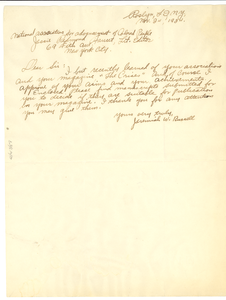 Nov. 20 - 19
National Association for advancement of Colored People
Jessie Redmond Fauset, Lit. Editor
69 Fifth Ave.
New York City.
Dear Sir: I but recently learned of your association
and your magazine - The Crisis - and of course I
approve of your aims and your achievements.
Enclosed please find manuscripts submitted for
you to decide if they are suitable for publication
in your magazine. I thank you for any attention
you may give them.
Yours very truly,
Jeremiah W.